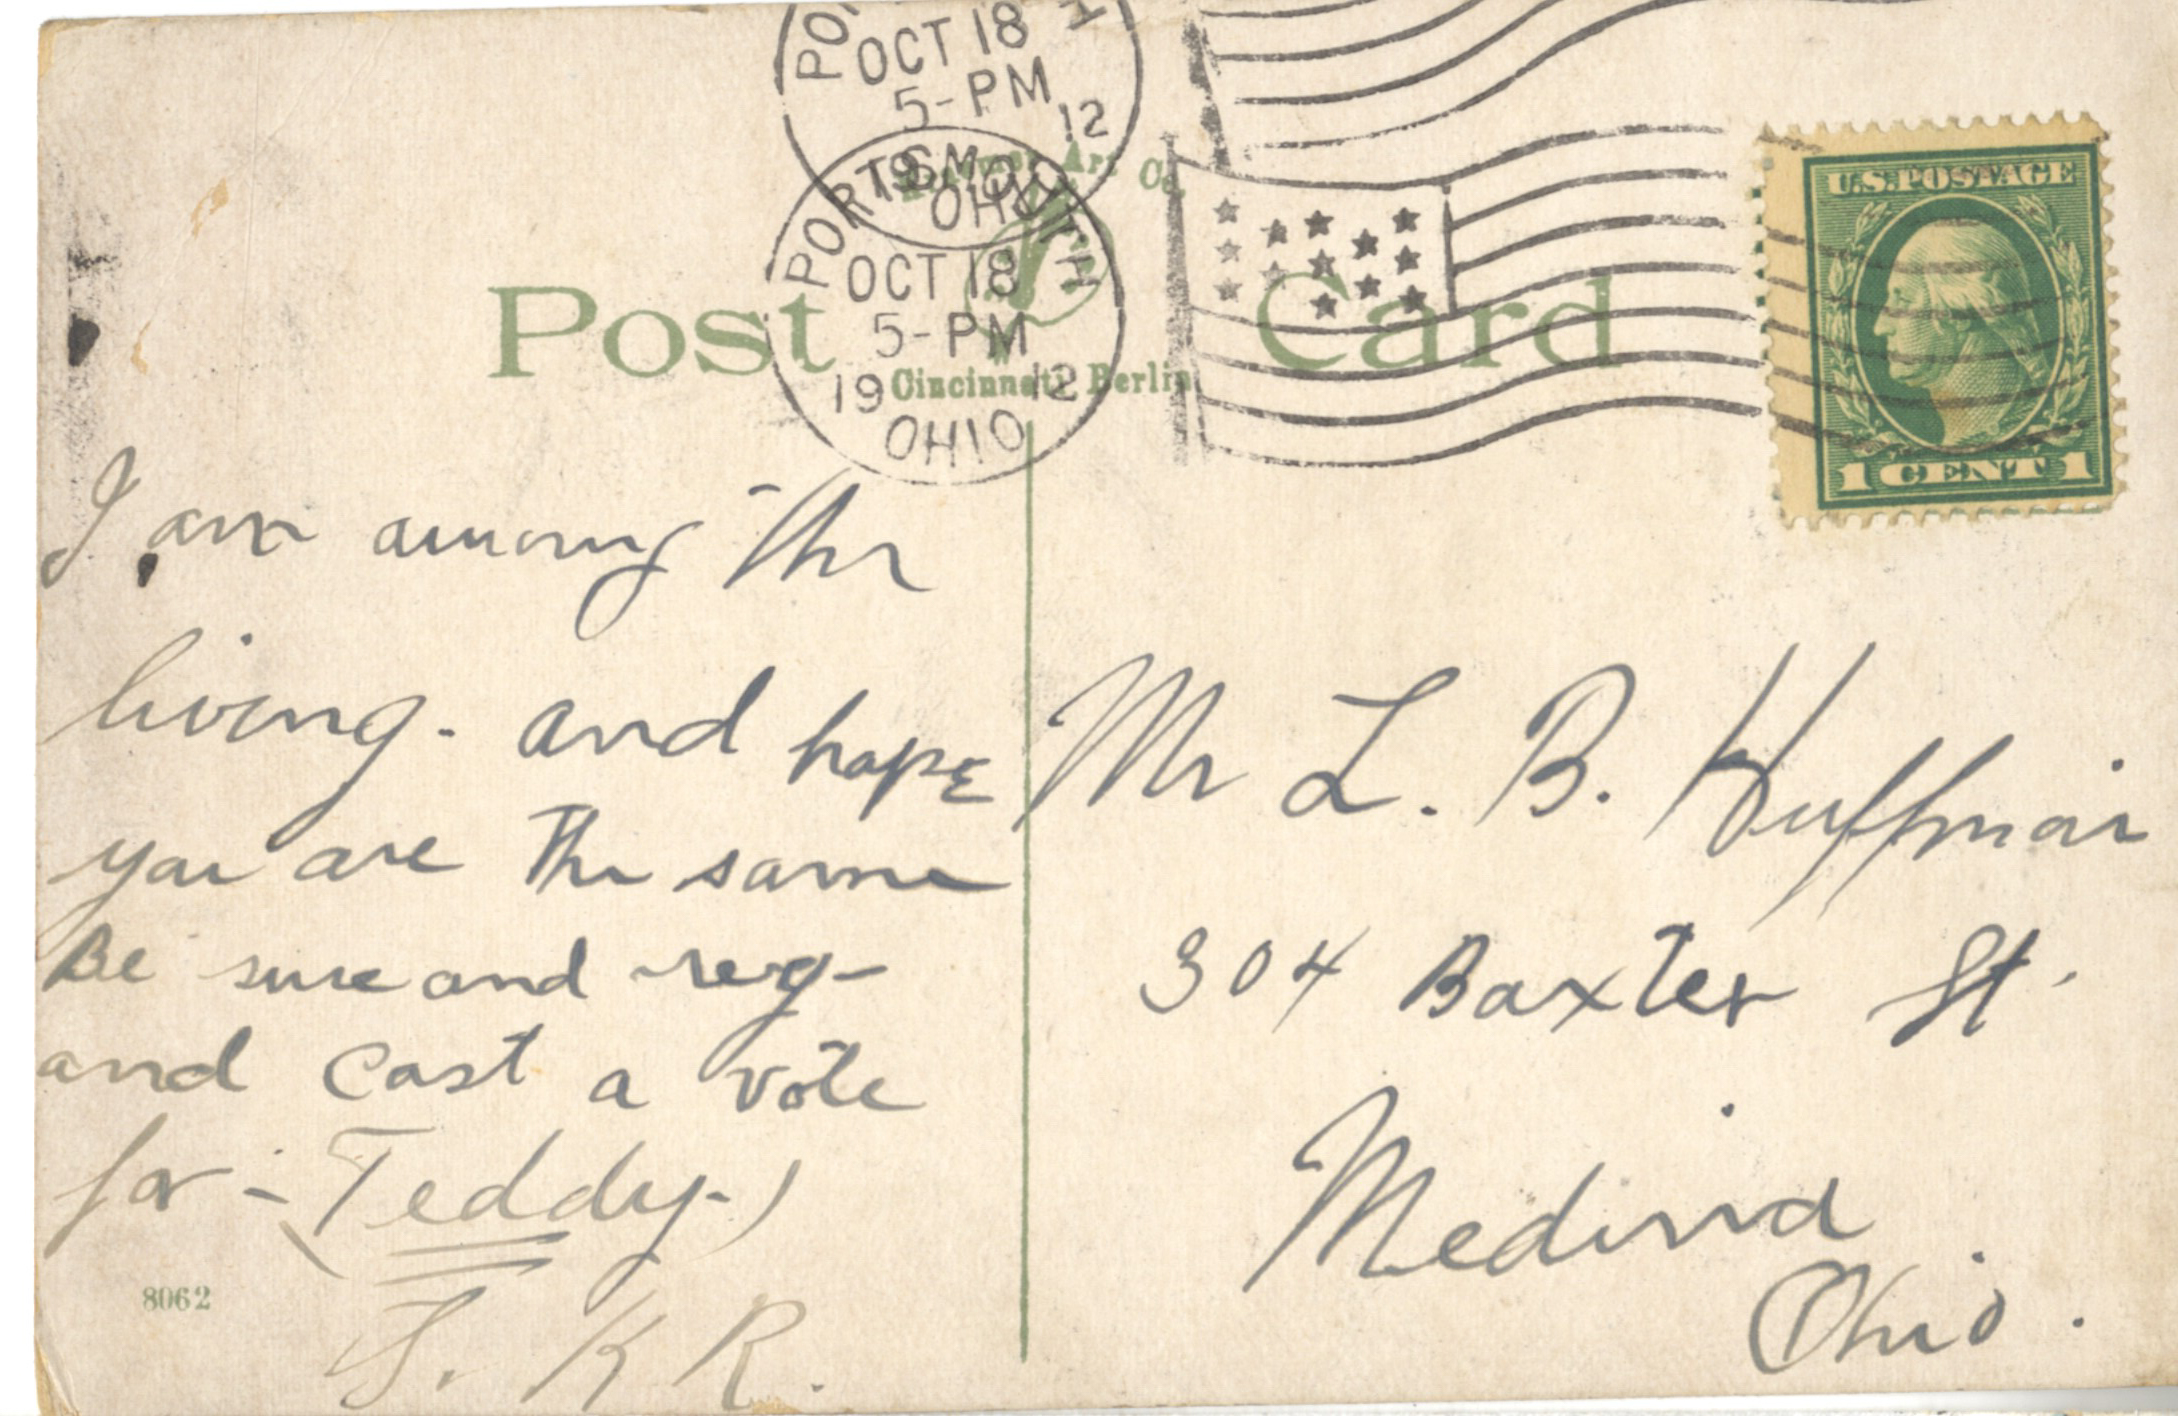 PO
OCT 18
5-PM
1912
OHIO
PORTSMOUTH
OCT 18
5-PM
1912
OHIO
Art Co.
Post Card
Cincinnati Berlin
U.S. POSTAGE
1 CENT 1
I am among the
living. and hope
you are the same
Be sure and reg-
and cast a vote
for - (Teddy.)
S. K R.
8062
Mr L. B. Huffman
304 Baxter St.
Medina
Ohio.